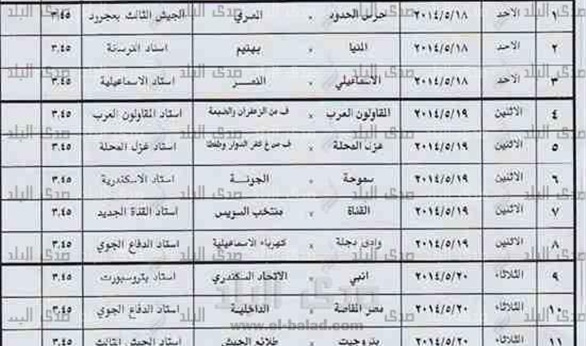 ١ الاحد ٢٠١٤/٥/١٨ حرس الحدود × المصري الجيش الثالث بعجرود ٣.٤٥
٢ الاحد ٢٠١٤/٥/١٨ المنيا × بهتيم استاد الترسانة ٣.٤٥
٣ الاحد ٢٠١٤/٥/١٨ الاسماعيلي × النصر استاد الاسماعيلية ٣.٤٥
٤ الاثنين ٢٠١٤/٥/١٩ المقاولون العرب × ف من الزعفران والضبعة استاد المقاولون العرب ٣.٤٥
٥ الاثنين ٢٠١٤/٥/١٩ غزل المحلة × ف من غ كفر الدوار وطنطا استاد غزل المحلة ٣.٤٥
٦ الاثنين ٢٠١٤/٥/١٩ سموحة × الجونة استاد الاسكندرية ٣.٤٥
٧ الاثنين ٢٠١٤/٥/١٩ القناة × منتخب السويس استاد القناة الجديد ٣.٤٥
٨ الاثنين ٢٠١٤/٥/١٩ وادى دجلة × كهرباء الاسماعيلية استاد الدفاع الجوي ٣.٤٥
٩ الثلاثاء ٢٠١٤/٥/٢٠ انبي × الاتحاد السكندري استاد بتروسبورت ٣.٤٥
١٠ الثلاثاء ٢٠١٤/٥/٢٠ مصر المقاصة × الداخلية استاد الدفاع الجوي ٣.٤٥
١١ الثلاثاء ٢٠١٤/٥/٢٠ بتروجيت × طلائع الجيش استاد الجيش الثالث ٣.٤٥
صدى البلد
www.el-balad.com